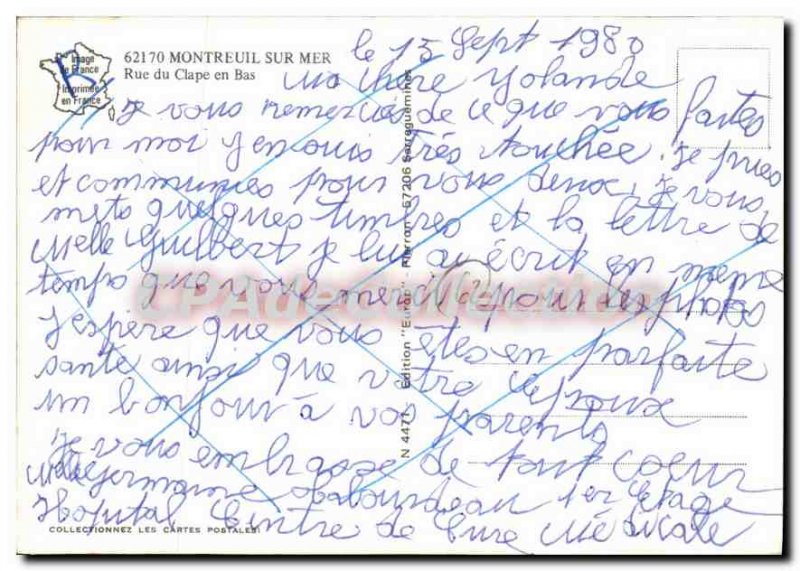 62170 MONTREUIL SUR MER
Rue du Clape en Bas
Image
de France
Imprimée
en France
le 15 Sept 1980
ma chère Yolande
je vous remercie de ce que vous faites
pour moi j'en suis très touchée. je pries
et communies pour vous deux, je vous
mets quelques timbres et la lettre de
Melle Guilbert je lui ai écrit en même
temps que vous. merci pour les photos
j'espère que vous êtes en parfaite
santé ainsi que votre époux
un bonjour à vos parents
je vous embrasse de tout coeur
Melle Germaine 1er Etage
Hopital Centre de Cure Médicale
COLLECTIONNEZ LES CARTES POSTALES
N 4471 Edition "Europ" - Pierron - 57206 Sarreguemines
CPAdeCollection